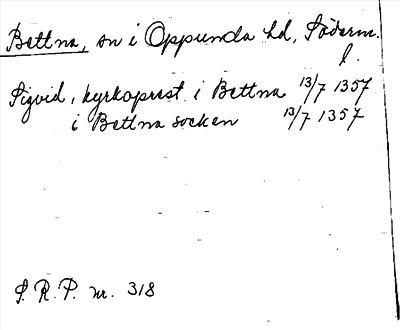 Bettna, sn i Oppunda hd, Söderm.
l.
Sigvid, kyrkoprest i Bettna 13/7 1357
i Bettna socken 13/7 1357
S. R. P. nr. 318